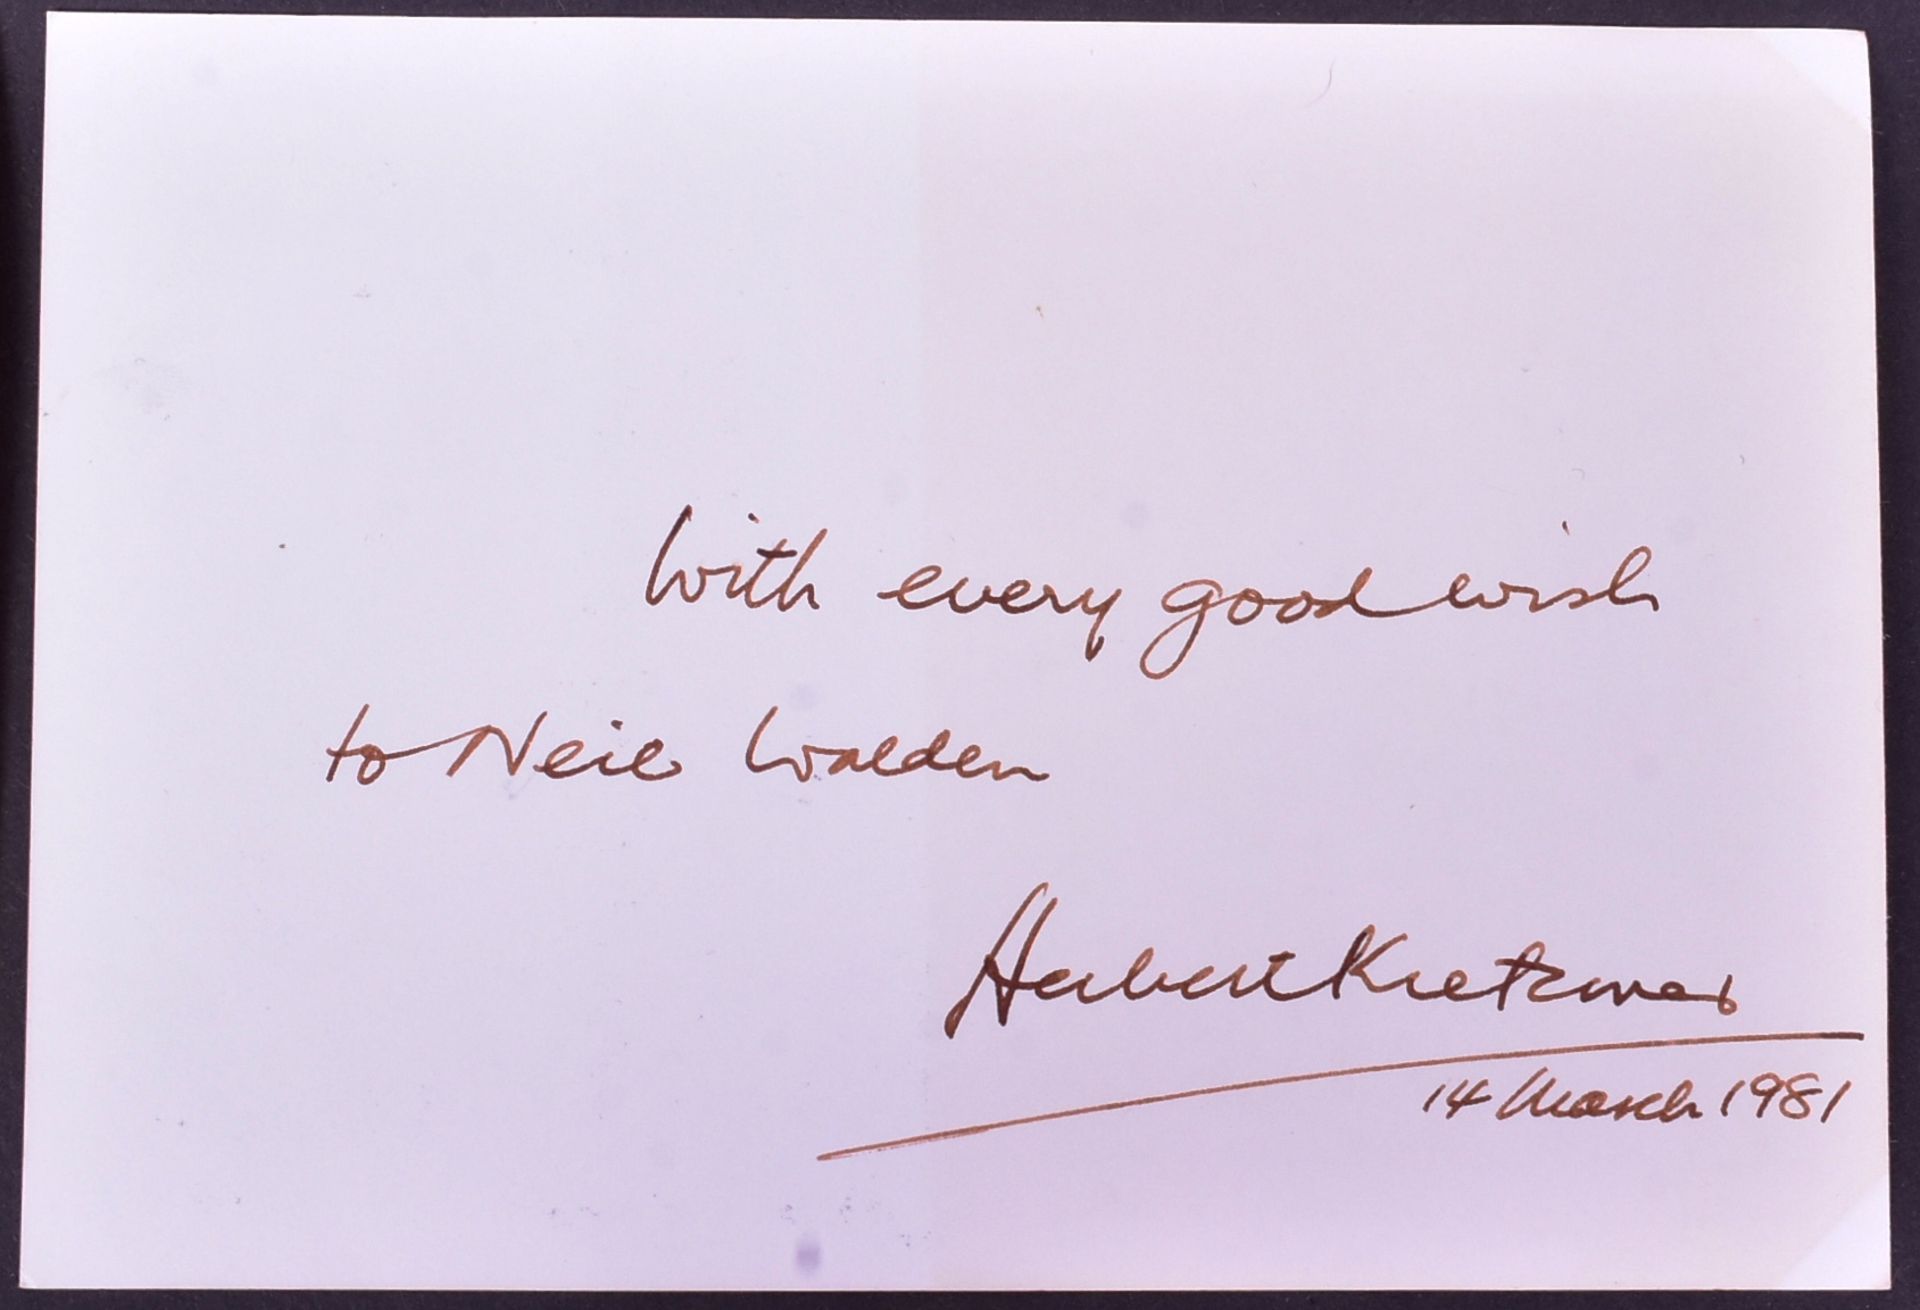 With every good wish
to Neil Walden
Herbert Kretzmer
14 March 1981